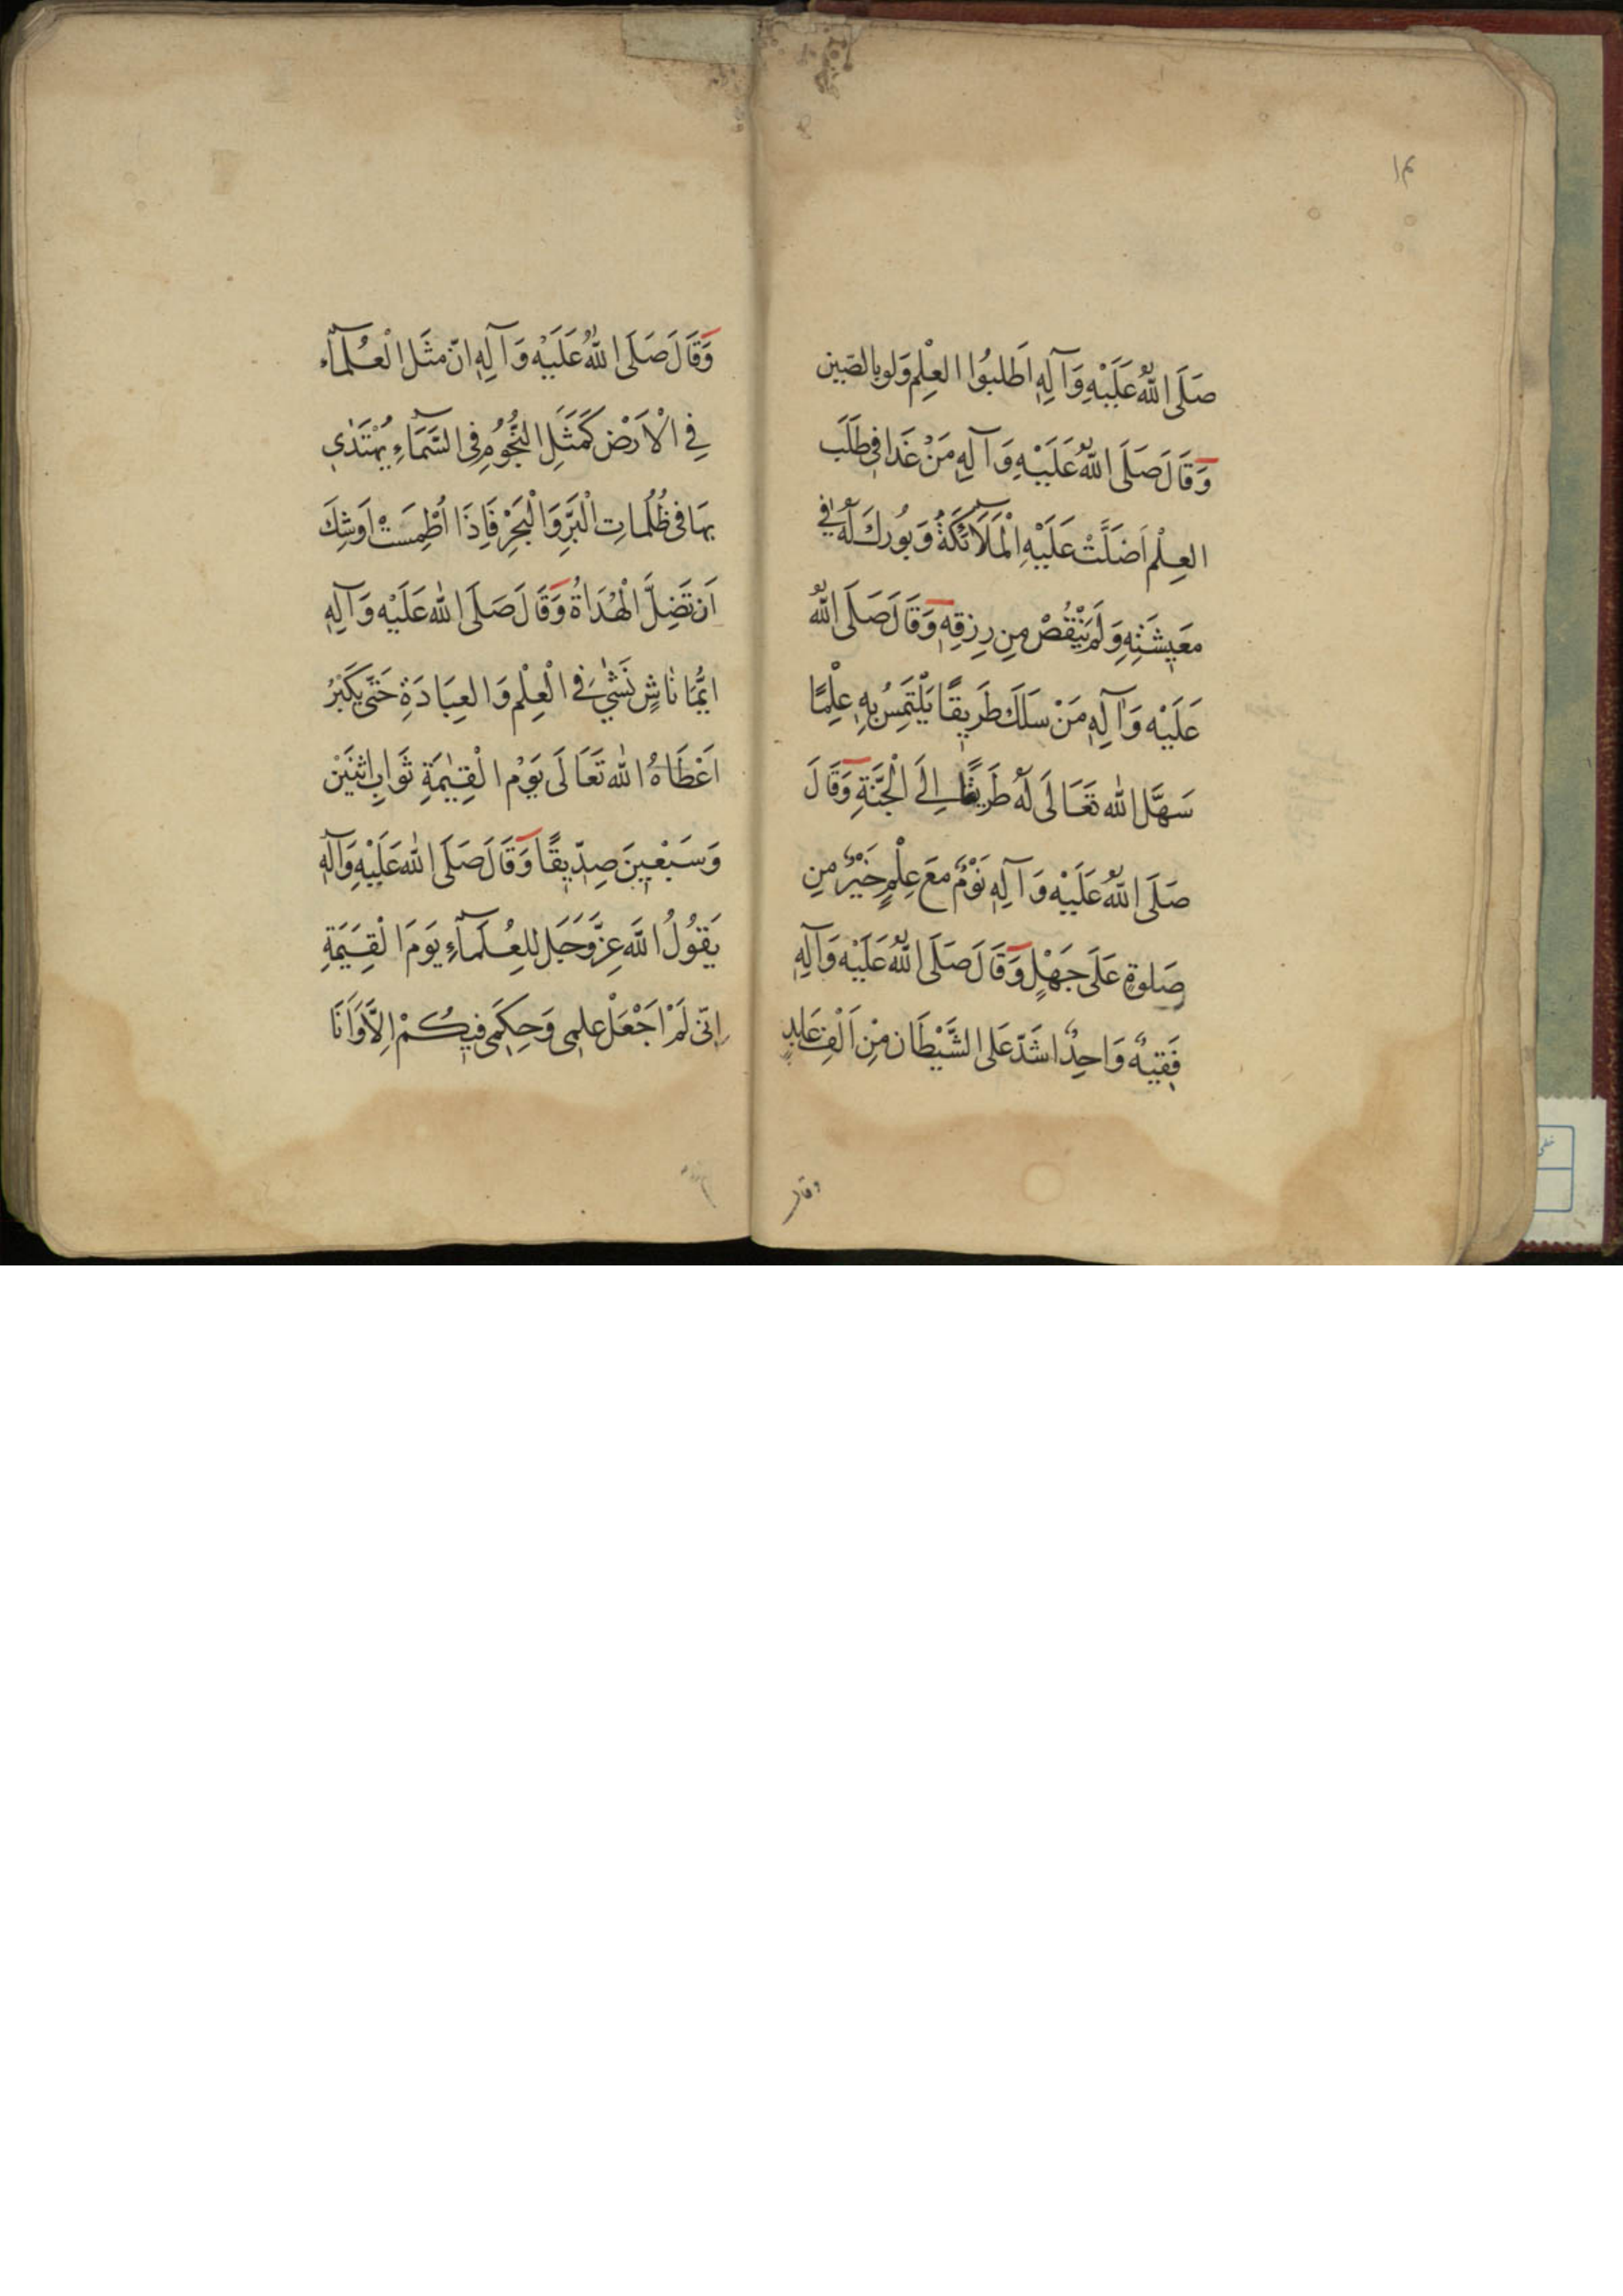 ١٣
صَلَى اللهُ عَلَيْهِ وَآلِهِ اَطلبُوا العِلْم وَلوبالصّين
وَقَالَ صَلَى اللهُ عَلَيْهِ وَآلِهِ مَنْ غَدَا فى طَلَب
العِلْم اَضَلَّتْ عَلَيْهِ الْمَلَآئكَةُ وَبُورِكَ لَهُ فِي
مَعيشَتِهِ وَلَمْ يَنْقُصْ مِن رِزقِهِ وَقَالَ صَلَى اللهُ
عَلَيْهِ وَآلِهِ مَنْ سَلَكَ طَرِيقًا يَلْتَمِسُ بِهِ عِلْمًا
سَهَّلَ الله تَعَالَى لَهُ طَرِيقًا اِلَى الْجَنَّةِ وَقَالَ
صَلَى اللهُ عَلَيْهِ وَآلِهِ نَوْمٌ مَعَ عِلْمٍ خَيْرٌ مِن
صَلوةٍ عَلَى جَهْلٍ وَقَالَ صَلَى اللهُ عَلَيْهِ وَآلِهِ
فَقيهٌ وَاحِدٌ اشَدّ عَلَى الشَّيْطَان مِنْ اَلْفِ عَابدٍ
وقال
وَقَالَ صَلَى اللهُ عَلَيْهِ وَآلِهِ انّ مثَل الْعُلَمآء
فِي الْاَرْضِ كَمَثَلِ النُّجُومِ فِى السَّمَآءِ يُهْتَدٰى
بِهَا فى ظُلُمَاتِ الْبَرِّ وَالْبَحْرِ فَاِذَا اُطْمِسَتْ اَوشِكَ
اَن تَضِلَّ الْهُدَاةُ وَقَالَ صَلَى الله عَلَيْهِ وَآلِهِ
ايُّمَا نَاشٍ نَشٰئَ فى الْعِلْم وَالعِبَادَةِ حَتّى يَكْبُرُ
اَعْطَاهُ الله تَعَالَى يَوْم الْقِيٰمَةِ ثَوَابَ اثنَيْن
وَسَبْعينَ صِدّيقًا وَقَالَ صَلَى الله عَلَيْهِ وَآلهِ
يَقُولُ اللهَ عزَّوَجَلّ للعُلَمَآءِ يَوَمَ الْقِيَمَةِ
اِنّى لَمْ اَجْعَلْ علمِى وَحِكمَى فيكُمْ اِلَّا وَاَنَا